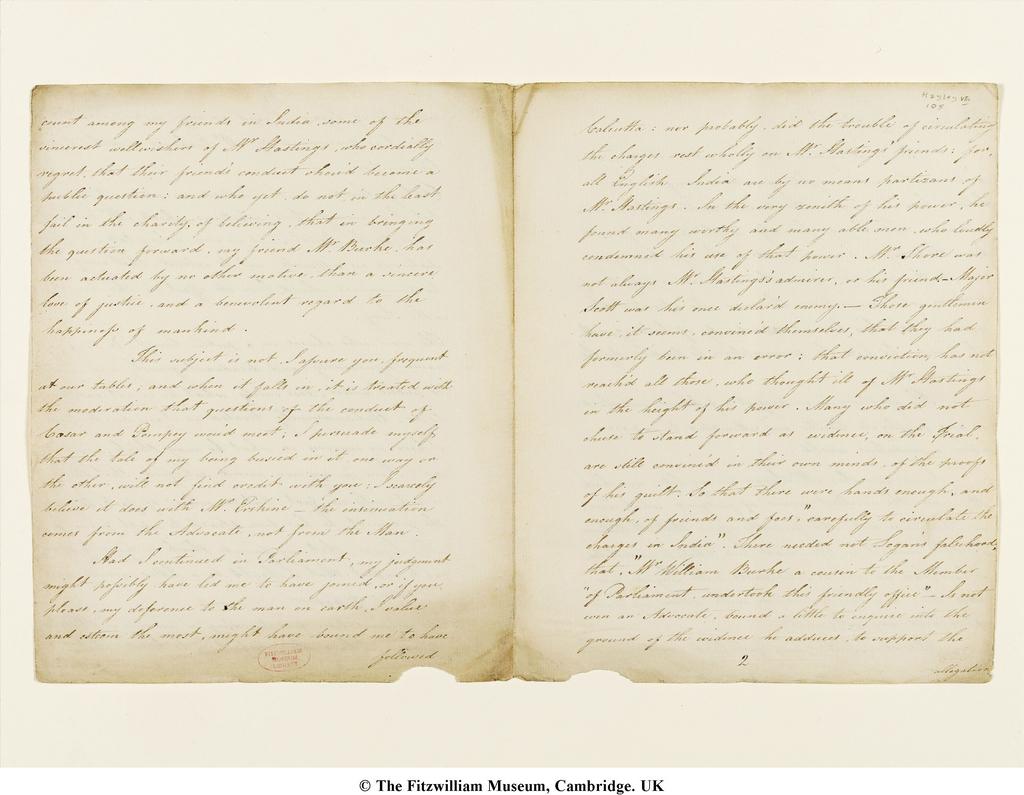 count among my friends in India some of the
sincerest wellwishers of Mr Hastings, who cordially
regret, that their friend's conduct shou'd become a
public question: and who yet, do not in the least
fail in the charity, of believing, that in bringing
the question forward, my friend Mr Burke, has
been actuated by no other motive, than a sincere
love of justice, and a benevolent regard to the
happiness of mankind.
This subject is not, I assure you, frequent
at our tables, and when it falls in, it is treated with
the moderation that questions of the conduct of
Cæsar and Pompey wou'd meet; I persuade myself
that the tale of my being busied in it one way or
the other, will not find credit with you: I scarcely
believe it does with Mr Erskine – the insinuation
comes from the Advocate, not from the Man.
Had I continued in Parliament, my judgment
might possibly have led me to have joined, or if you
please, my deference to the man on earth, I value
and esteem the most, might have bound me to have
followed
FITZWILLIAM
MUSEUM
LIBRARY
Hayley VII
105
Calcutta: nor probably, did the trouble of circulating
the charges rest wholly on Mr Hastings' friends: for,
all English India are by no means partizans of
Mr Hastings. In the very zenith of his power, he
found many worthy and many able men, who loudly
condemned his use of that power. Mr Shore was
not always Mr Hastings's admirer, or his friend – Major
Scott was his once declar'd enemy. – Those gentlemen
have, it seems, convinced themselves, that they had
formerly been in an error: that conviction, has not
reach'd all those, who thought ill of Mr Hastings
in the height of his power. Many who did not
chuse to stand forward as evidence, on the Trial,
are still convinc'd in their own minds, of the proofs
of his guilt. So that there were hands enough, and
enough, of friends and foes, "carefully to circulate the
charges in India". There needed not Logan's falsehood,
that, "Mr William Burke a cousin to the Member
"of Parliament, undertook this friendly office" – Is not
even an Advocate, bound a little to enquire into the
ground of the evidence he adduces, to support the
2
allegation
© The Fitzwilliam Museum, Cambridge. UK